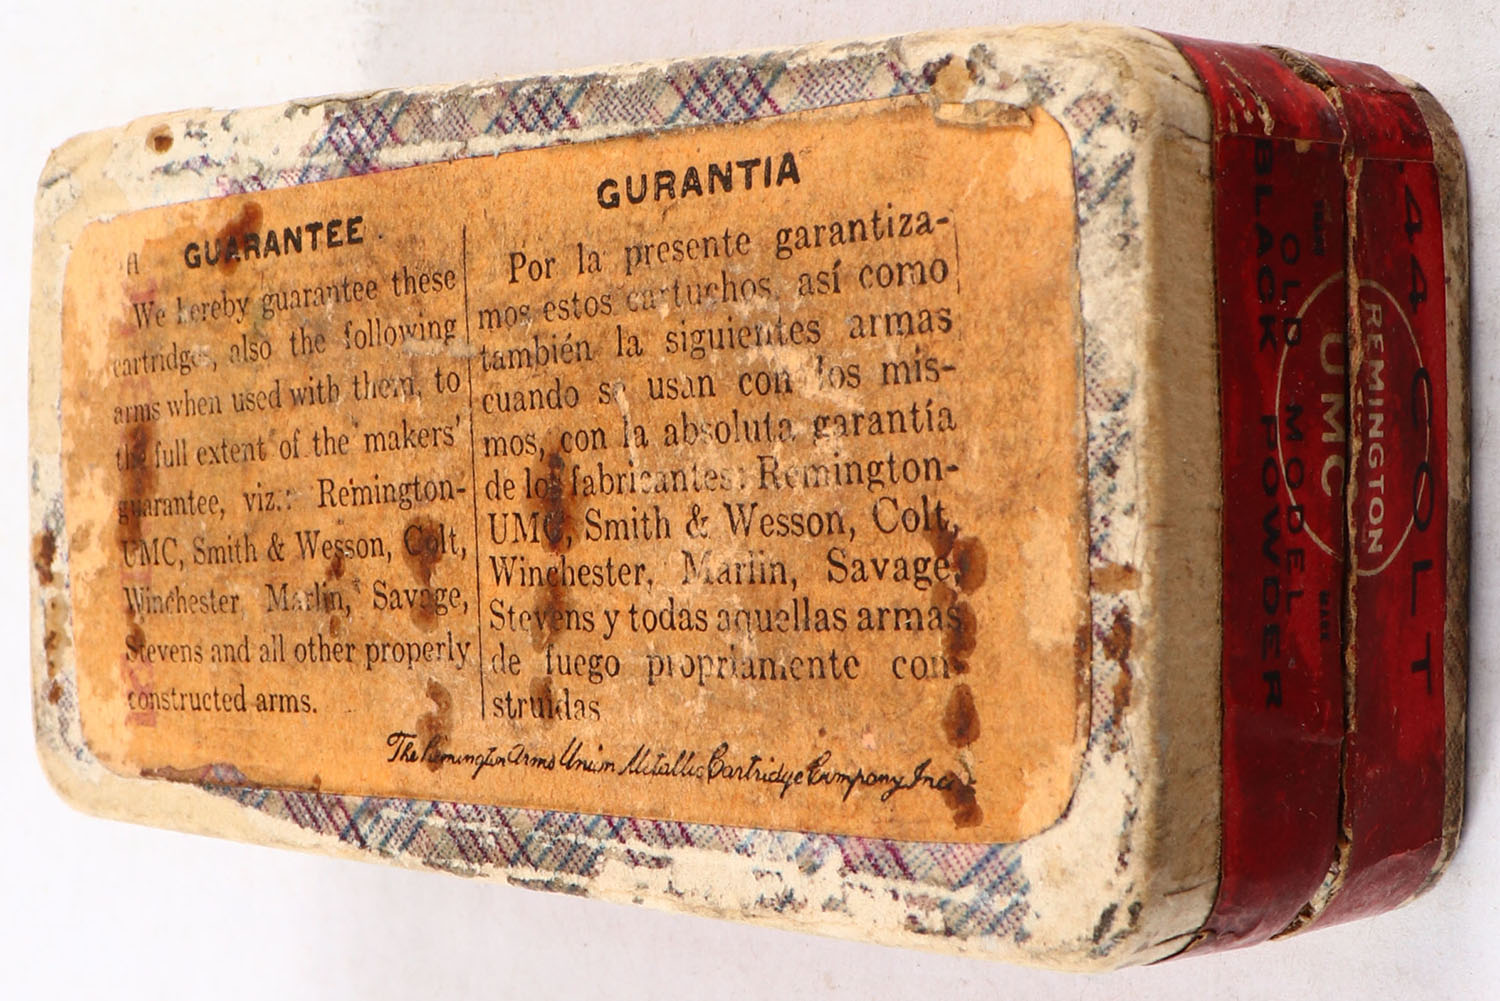 GUARANTEE
We hereby guarantee these
cartridges, also the following
arms when used with them, to
the full extent of the makers'
guarantee, viz.: Remington-
UMC, Smith & Wesson, Colt,
Winchester, Marlin, Savage,
Stevens and all other properly
constructed arms.
GURANTIA
Por la presente garantiza-
mos estos cartuchos, así como
también la siguientes armas
cuando se usan con los mis-
mos, con la absoluta garantía
de los fabricantes: Remington-
UMC, Smith & Wesson, Colt,
Winchester, Marlin, Savage,
Stevens y todas aquellas armas
de fuego propriamente con-
struidas
The Remington Arms Union Metallic Cartridge Company Inc
.44 COLT
REMINGTON
UMC
OLD MODEL
BLACK POWDER